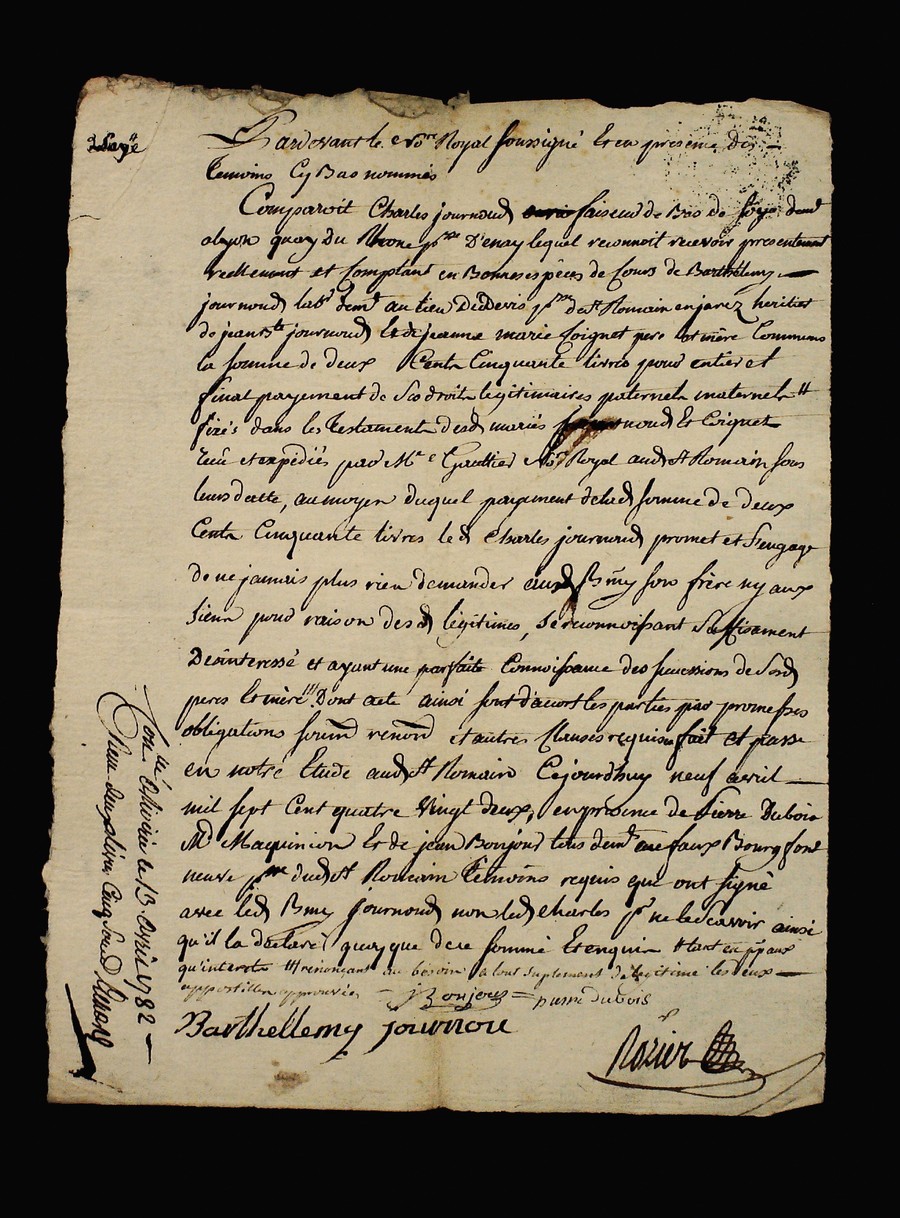 Pardevant le No.re Royal soussigné Et en présence des
Temoins Cy Bas nommés
Comparoit Charles journoud faiseur de Bas de soye demt
alyon quay Du Rhone psse D'enay lequel reconnoit recevoir presentement
reellement et Comptant en Bonnes espèces de Cours de Barthellemy
journoud labr demt au lieu psse de st Romain en jarez heritier
de jean journoud Et de jeanne marie Coignet pere et mère Communs
la somme de deux Cents Cinquante livres pour entier et
final payement de Ses droits legitimaires paternels maternels #
fixés dans les Testaments desd mariés journoud Et Coignet
recu et expédiés par Me Gaultier No.re Royal aud st Romain sous
leurs datte, au moyen duquel payement de lad somme de deux
Cents Cinquante livres led Charles journoud promet et s'engage
de ne jamais plus rien demander aud Bmy son frère ny aux
siens pour raison desd légitimes, se reconnoissant suffisament
Desinteressé et ayant une parfaite Connoissance des successions de Sesd
peres Et mère /// Dont acte ainsi sont d'acort les parties par promesses
obligations soumd renond et autres Clauses requises fait et passé
en notre Etude aud st Romain Cejourdhuy neuf avril
mil sept Cent quatre Vingt deux, en présence de Pierre Dubois
Md Maquinion Et de jean Bonjour tous demt au faux Bourg font
neuve psse dud st Romain Temoins requis qui ont signé
avec led Bmy journoud non led Charles pr ne le scavoir ainsi
qu'il la declaré quoy que de ce sommé Et enquis # tant en ppaux
qu'interets /// renonçant au besoin a tout suplement de legitime les eux
appostilles approuvées jBonjour pierre dubois
Barthellemy journou
Rozier
Conlé Et Livrée le 13 avril 1782